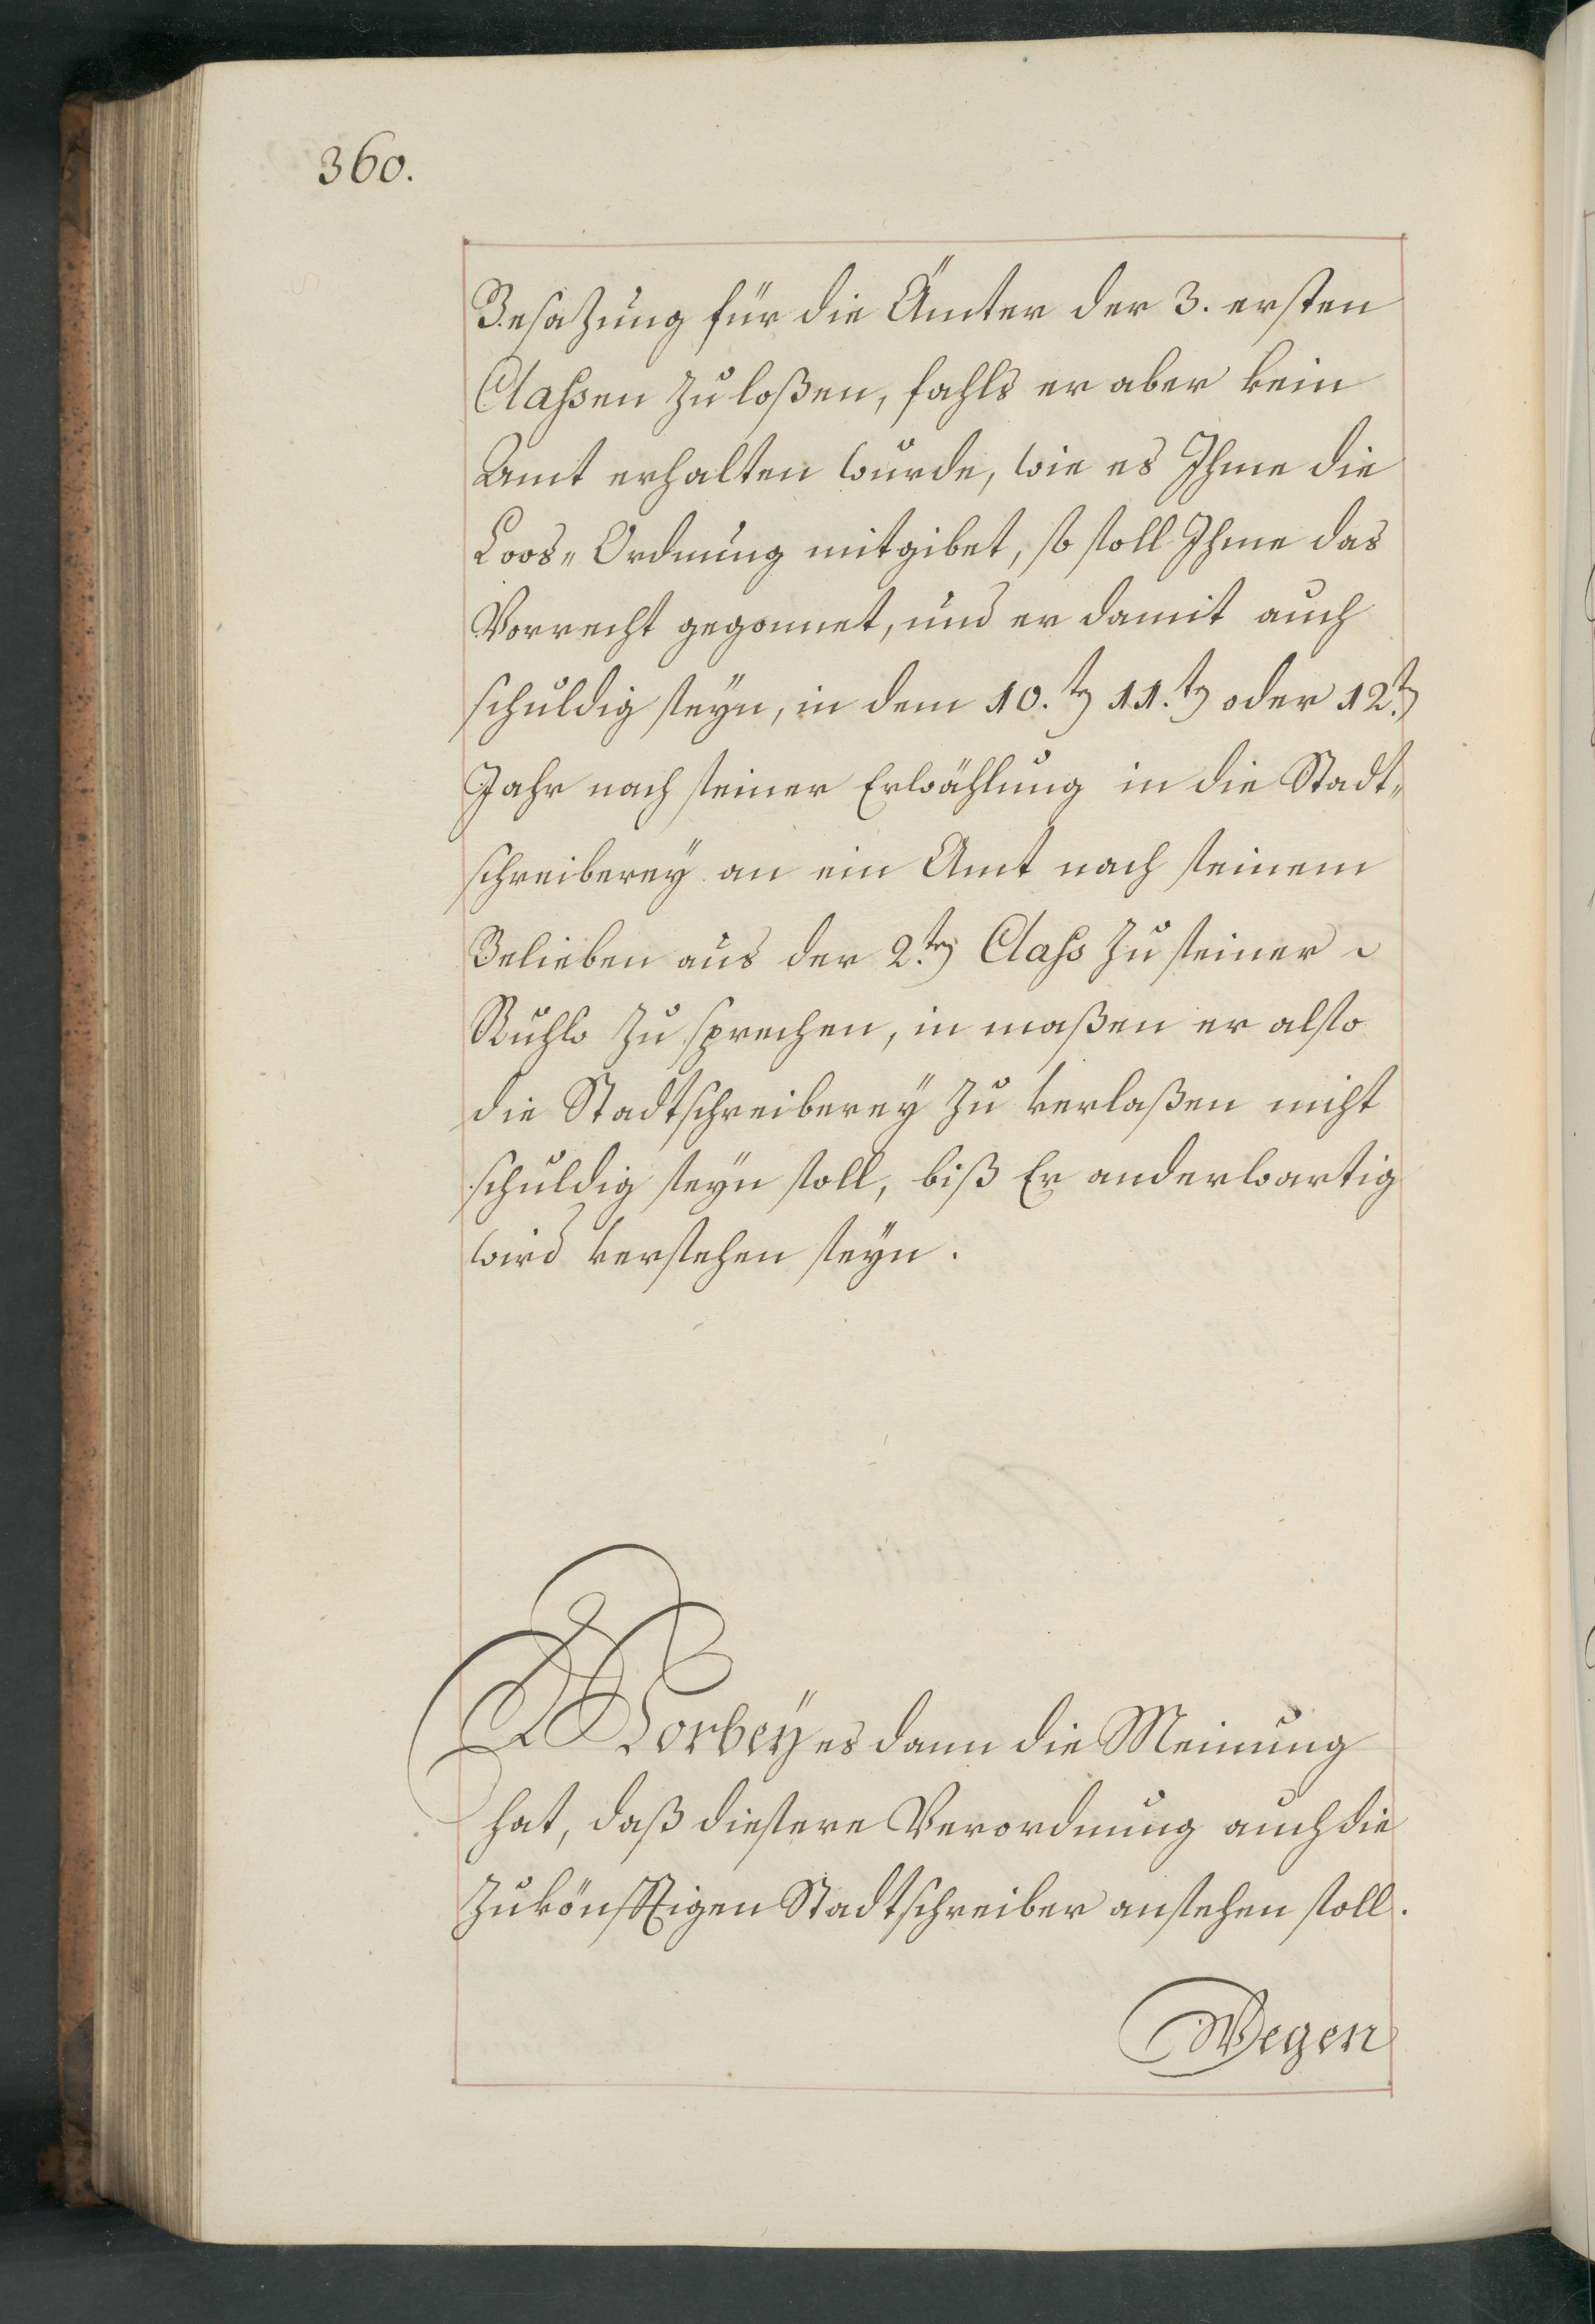 360.
Besazung für die Ämter der 3. ersten
Classen zu loßen, fahls er aber kein
Amt erhalten wurde, wie es Ihme die
Loos„ Ordnung mitgibet, so soll Ihme das
Vorrecht gegonnet, und er damit auch
schuldig seÿn, in dem 10.ten 11.ten oder 12.ten
Jahr nach seiner Erwählung in die Stadt„
schreibereÿ an ein Amt nach seinem
Belieben aus der 2.ten Class zu seiner
Ruhw zu sprechen, in maßen er also
die Stadtschreibereÿ zu verlaßen nicht
schuldig seÿn soll, biß Er anderwartig
wird versehen seÿn.
Worbeÿ es dann die Meinung
hat, daß diesere Verordnung auch die
zukönfftigen Stadtschreiber ansehen soll.
Wegen